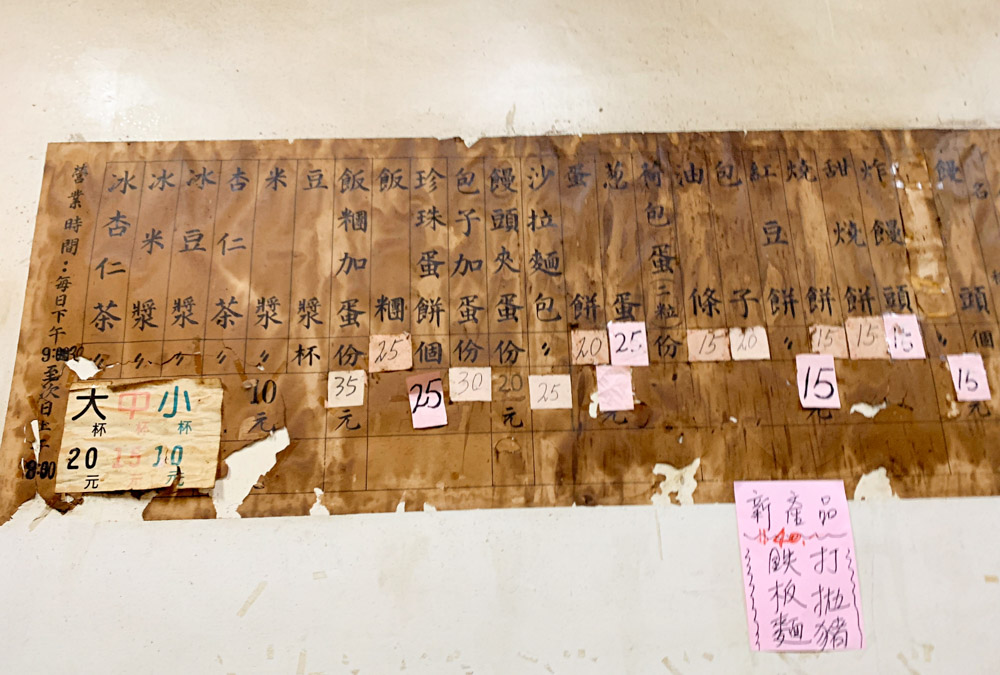 名 個
饅頭 〃 15
饅頭 15
炸燒餅 15
甜燒餅 15
燒餅 15 元
紅豆餅 〃
包子 20
油條 15
荷包蛋(二粒)份
蔥蛋 25 元
蛋餅 20
沙拉麵包 〃 25
饅頭夾蛋份 20 元
包子加蛋份 30
珍珠蛋餅個 25
飯糰 25
飯糰加蛋份 35 元
豆漿杯
米漿 〃 10 元
杏仁茶 〃
冰豆漿 〃
冰米漿 〃
冰杏仁茶 〃
營業時間:每日下午9:00至次日上午8:00
小杯 10 元
中杯 15 元
大杯 20 元
新產品
40
打拋豬
鉄板麵